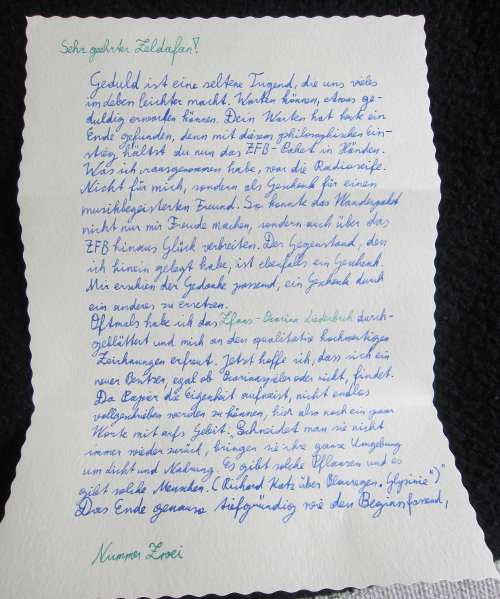 Sehr geehrter Zeldafan!
Geduld ist eine seltene Tugend, die uns vieles
im Leben leichter macht. Warten können, etwas ge-
duldig erwarten können. Dein Warten hat heute ein
Ende gefunden, denn mit diesem philosophischen Ein-
stieg hältst du nun das ZFB-Paket in Händen.
Was ich rausgenommen habe, war die Radioseife.
Nicht für mich, sondern als Geschenk für einen
musikbegeisterten Freund. So konnte das Wanderpaket
nicht nur mir Freude machen, sondern auch über das
ZFB hinaus Glück verbreiten. Der Gegenstand, den
ich hinein gelegt habe, ist ebenfalls ein Geschenk.
Mir erschien der Gedanke passend, ein Geschenk durch
ein anderes zu ersetzen.
Oftmals habe ich das Zfans-Ocarina Liederbuch durch-
geblättert und mich an den qualitativ hochwertigen
Zeichnungen erfreut. Jetzt hoffe ich, dass sich ein
neuer Besitzer, egal ob Ocarinaspieler oder nicht, findet.
Da Papier die Eigenheit aufweist, nicht endlos
vollgeschrieben werden zu können, hier also noch ein paar
Worte mit aufs Gebit: "Schneidet man sie nicht
immer wieder zurück, bringen sie ihre ganze Umgebung
um Licht und Nahrung. Es gibt solche Pflanzen und es
gibt solche Menschen. (Richard Katz über Blauregen "Glyzinie")"
Das Ende genauso tiefgründig wie den Beginn fassend,
Nummer Zwei